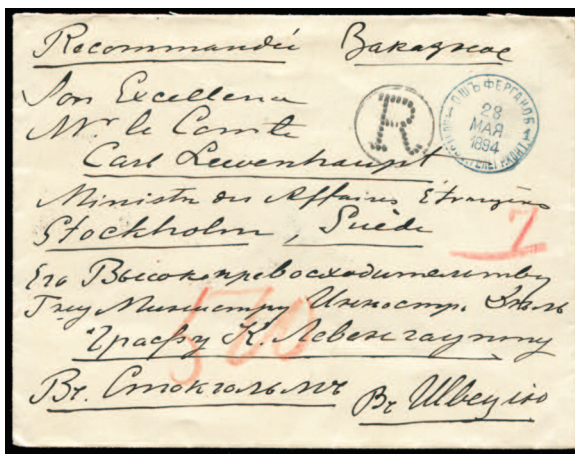 Recommandée Заказное
Son Excellence
Mr le Comte
Carl Lewenhaupt
Ministre des Affaires Etrangères
Stockholm, Suède
R
ОШЪ ФЕРГАНОБ
28
МАЯ
1894
1
7
Его Высокопревосходительству
Гну Министру Инностр. Дѣлъ
Графу К. Левенгаупту
500
Въ. Стокгольмъ
Въ Швецію